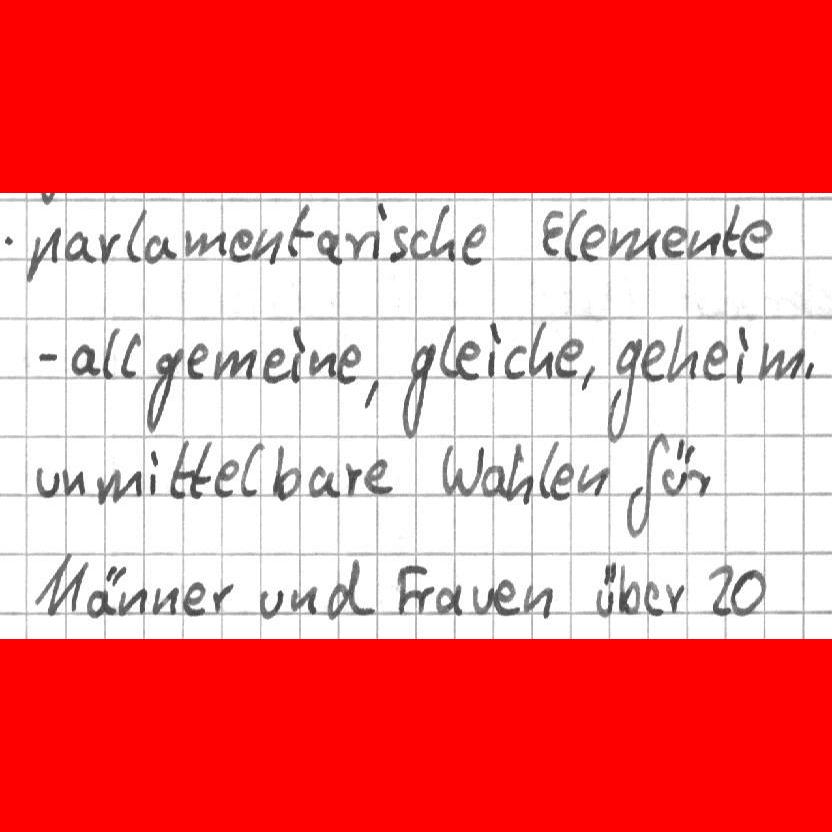 · parlamentarische Elemente
- allgemeine, gleiche, geheim.
unmittelbare Wahlen für
Männer und Frauen über 20